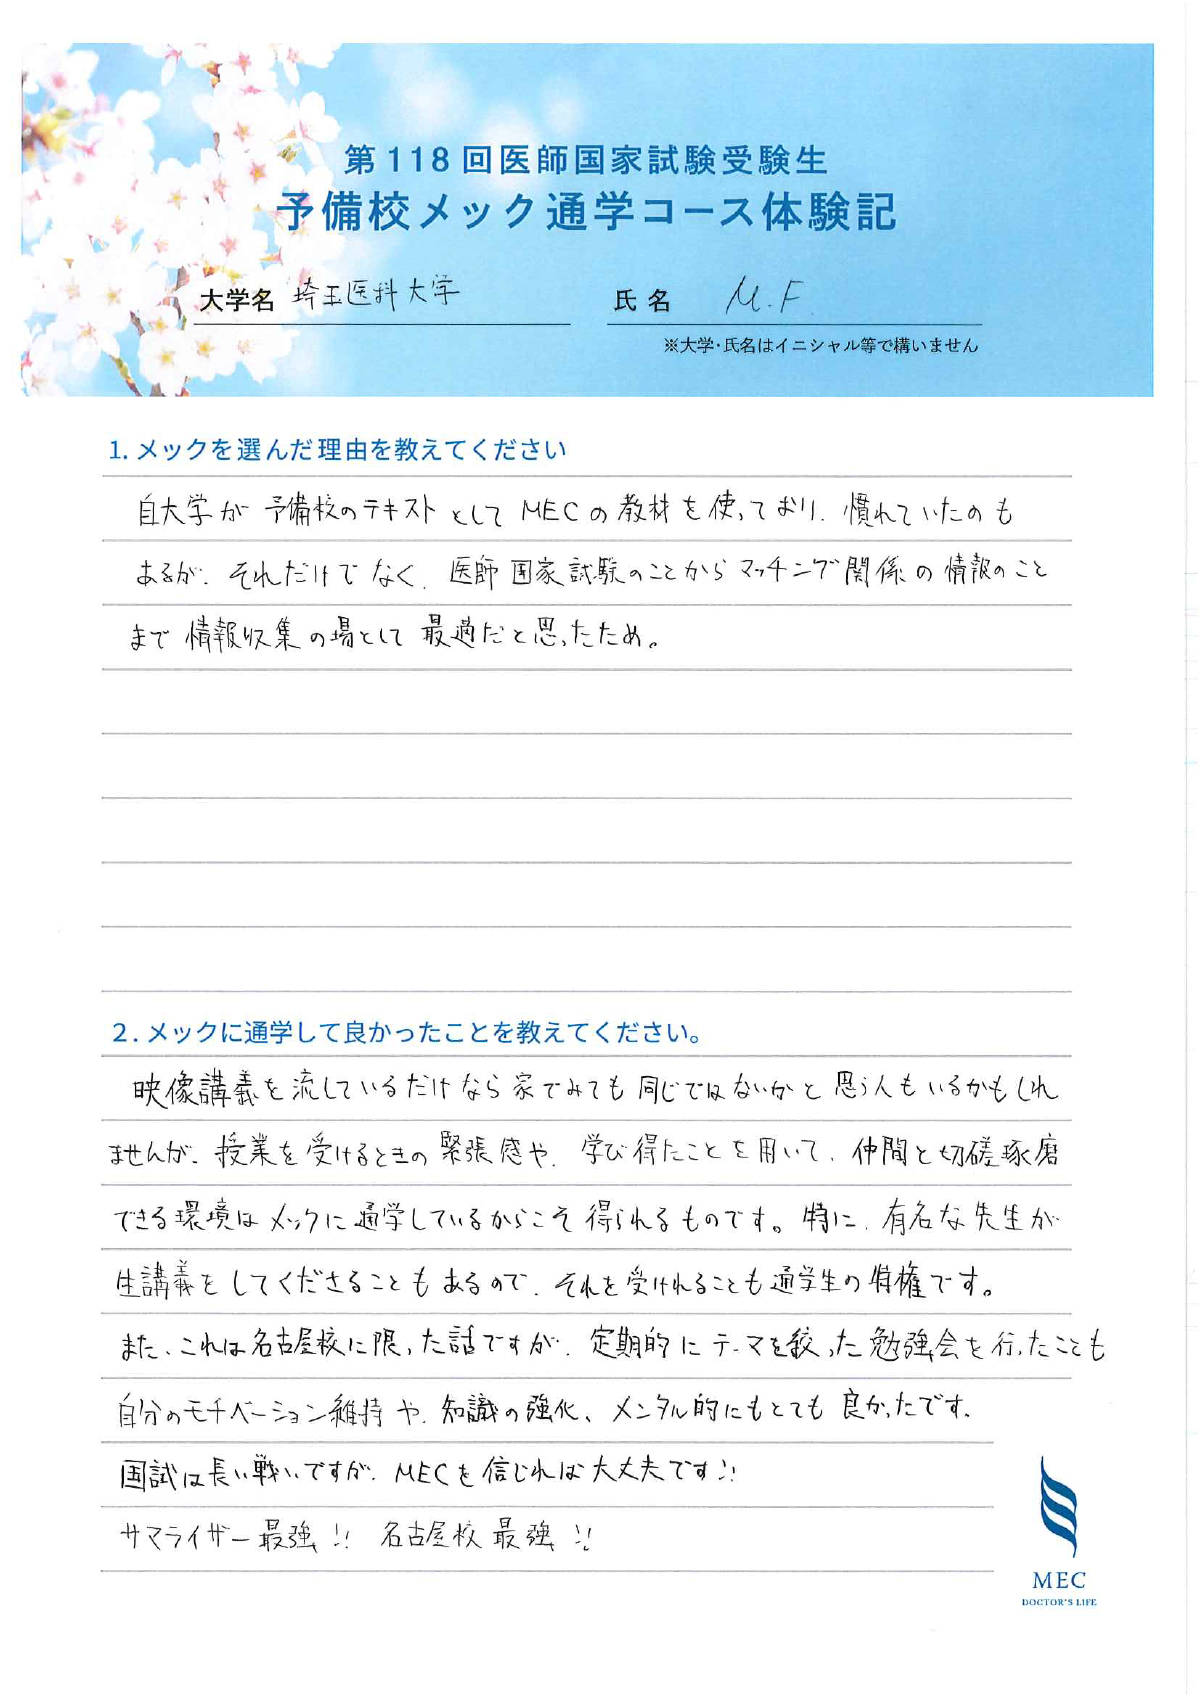 第118回医師国家試験受験生
予備校メック通学コース体験記
大学名 埼玉医科大学 氏名 M.F
※大学・氏名はイニシャル等で構いません
1. メックを選んだ理由を教えてください
自大学が予備校のテキストとしてMECの教材を使っており、慣れていたのも
あるが、それだけでなく、医師国家試験のことからマッチング関係の情報のこと
まで情報収集の場として最適だと思ったため。
2. メックに通学して良かったことを教えてください。
映像講義を流しているだけなら家でみても同じではないかと思う人もいるかもしれ
ませんが、授業を受けるときの緊張感や、学び得たことを用いて、仲間と切磋琢磨
できる環境はメックに通学しているからこそ得られるものです。特に、有名な先生が
生講義をしてくださることもあるので、それを受けれることも通学生の特権です。
また、これは名古屋校に限った話ですが、定期的にテーマを絞った勉強会を行ったことも
自分のモチベーション維持や、知識の強化、メンタル的にもとても良かったです。
国試は長い戦いですが、MECを信じれば大丈夫です!!
サマライザー最強!! 名古屋校最強!!
MEC
DOCTOR'S LIFE